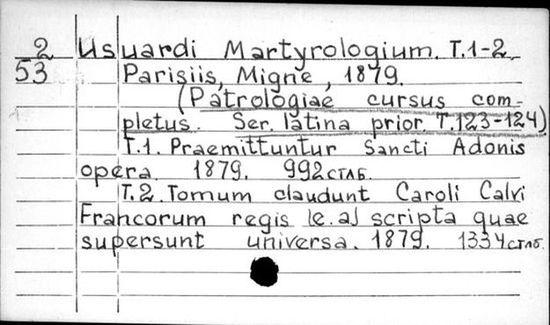 2 Usuardi Martyrologium. T.1-2.
53 Parisiis, Migne, 1879.
(Patrologiae cursus com-
pletus. Ser. latina prior. T.123-124)
T.1. Praemittuntur Sancti Adonis
opera. 1879. 992 стлб.
T.2. Tomum claudunt Caroli Calvi
Francorum regis [e.a] scripta quae
supersunt universa. 1879. 1334 стлб.